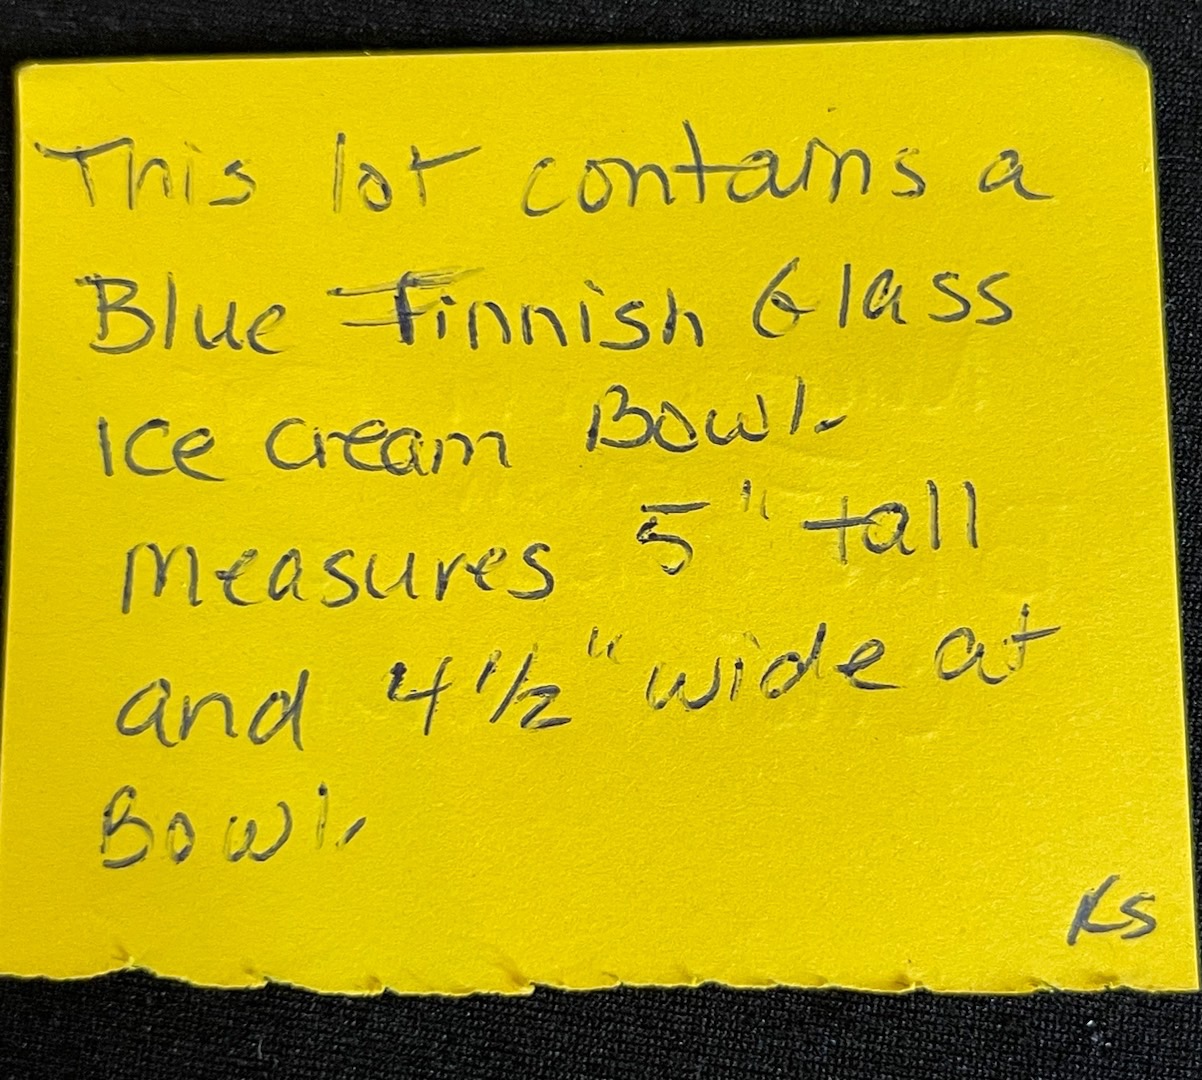 This lot contains a
Blue Finnish Glass
Ice cream Bowl.
Measures 5" tall
and 4 1/2" wide at
Bowl.
KS